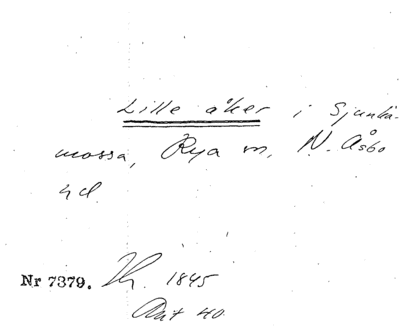 Lille åker i Sjunka-
mossa, Rya sn, N. Åsbo
hd.
Nr 7379. Th. 1845
Ant 40